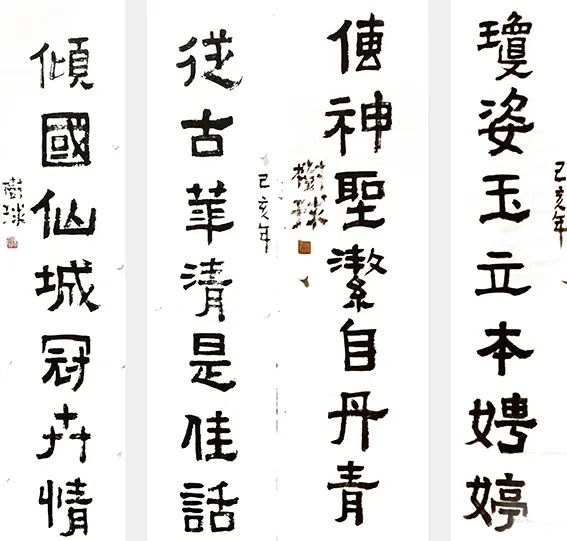 己亥年
瓊姿玉立本娉婷
傳神聖潔自丹青
樹球
己亥年
從古華清是佳話
傾國仙城冠卉情
樹球